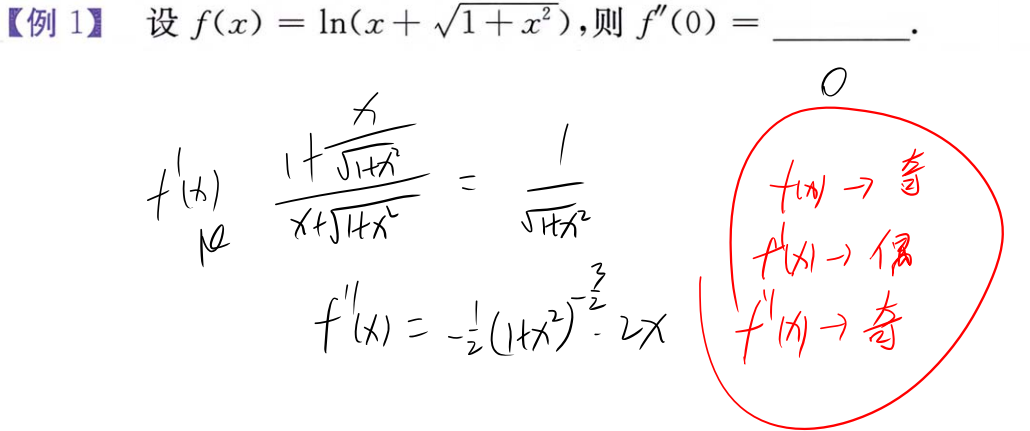 【例 1】 设 f(x) = ln(x + √(1 + x²)),则 f″(0) = ________.
0
f'(x) (1+x/√(1+x²))/(x+√(1+x²)) = 1/√(1+x²)
f''(x) = -1/2(1+x²)^(-3/2) · 2x
f(x) → 奇
f'(x) → 偶
f''(x) → 奇